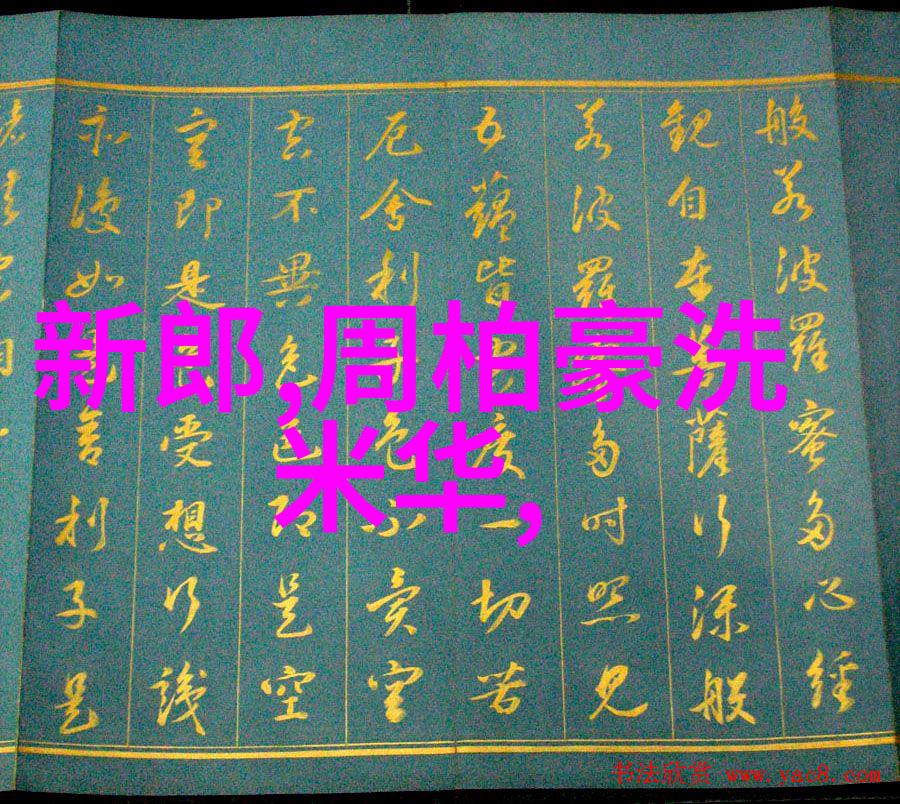 般若波羅蜜多心經
觀自在菩薩行深般
若波羅蜜多时照見
五蘊皆空度一切苦
厄舍利子色不異空
空不異色色即是空
空即是色受想行識
亦復如是舍利子是
新郎,周柏豪洗
米华,
书法欣赏 www.yac8.com